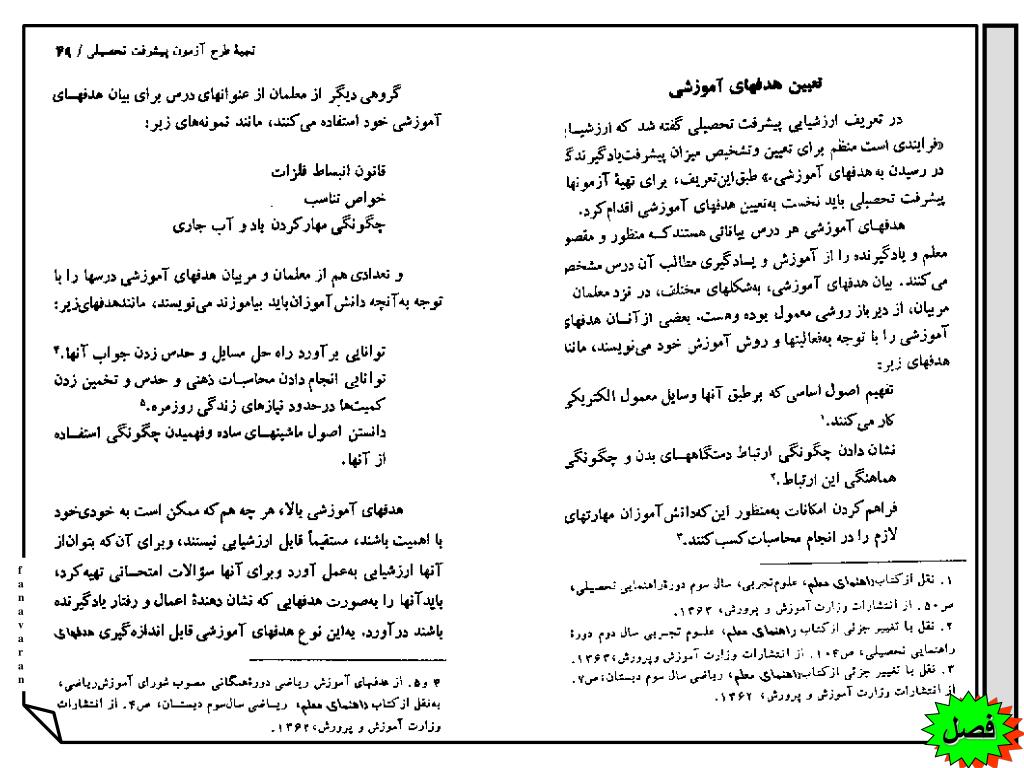 تعیین هدفهای آموزشی
در تعریف ارزشیابی پیشرفت تحصیلی گفته شد که ارزشیا
«فرایندی است منظم برای تعیین وتشخیص میزان پیشرفت‌یادگیرندگ
در رسیدن به هدفهای آموزشی.» طبق‌این‌تعریف، برای تهیهٔ آزمونها
پیشرفت تحصیلی باید نخست به‌تعیین هدفهای آموزشی اقدام‌کرد.
هدفهـای آموزشی هر درس بیاناتی هستندکـه منظور و مقصو
معلم و یادگیرنده را از آموزش و یـادگیری مطالب آن درس مشخص
می‌کنند. بیان هدفهای آموزشی، به‌شکلهای مختلف، در نزد معلمان
مربیان، از دیرباز روشی معمول بوده وهست. بعضی ازآنـان هدفهای
آموزشی را با توجه به‌فعالیتها و روش آموزش خود می‌نویسند، مانند
هدفهای زیر:
تفهیم اصول اساسی که برطبق آنها وسایل معمول الکتریکی
کار می‌کنند.۱
نشان دادن چگونگی ارتباط دستگاههـای بدن و چگونگی
هماهنگی این ارتباط.۲
فراهم‌کردن امکانات به‌منظور این‌که‌دانش‌آموزان مهارتهای
لازم را در انجام محاسبات‌کسب‌کنند.۳
۱. نقل ازکتاب‌راهنمای معلم، علوم‌تجربی، سال سوم دورهٔ‌راهنمایی تحصیلی،
ص۵۰. از انتشارات وزارت آموزش و پرورش، ۱۳۶۳.
۲. نقل با تغییر جزئی ازکتاب راهنمای معلم، علـوم تجـربی سال دوم دورهٔ
راهنمایی تحصیلی، ص۱۰۴. از انتشارات وزارت آموزش وپرورش،۱۳۶۳.
۳. نقل با تغییر جزئی ازکتاب‌راهنمای معلم، ریاضی سال سوم دبستان،ص۷.
از انتشارات وزارت آموزش و پرورش، ۱۳۶۲.
تهیهٔ طرح آزمون پیشرفت تحصیلی / ۴۹
گروهی دیگر از معلمان از عنوانهای درس برای بیان هدفهـای
آموزشی خود استفاده می‌کنند، مانند نمونه‌های زیر:
قانون انبساط فلزات
خواص تناسب
چگونگی مهارکردن باد و آب جاری
و تعدادی هم از معلمان و مربیان هدفهای آموزشی درسها را با
توجه به‌آنچه دانش‌آموزان‌باید بیاموزند می‌نویسند، مانندهدفهای‌زیر:
توانایی برآورد راه حل مسایل و حدس زدن جواب آنها.۴
توانایی انجام دادن محاسبات ذهنی و حدس و تخمین زدن
کمیت‌ها درحدود نیازهای زندگی روزمره.۵
دانستن اصول ماشینهـای ساده وفهمیدن چگونگی استفـاده
از آنها.
هدفهای آموزشی بالا، هر چه هم‌که ممکن است به خودی‌خود
با اهمیت باشند، مستقیماً قابل ارزشیابی نیستند، وبرای آن‌که بتوان‌از
آنها ارزشیابی به‌عمل آورد وبرای آنها سؤالات امتحـانی تهیه‌کرد،
بایدآنها را به‌صورت هدفهایی که نشان دهندهٔ اعمال و رفتار یادگیرنده
باشند درآورد. به‌این نوع هدفهای آموزشی قابل اندازه‌گیری هدفهای
۴ و۵. از هدفهای آموزش ریاضی دورهٔ‌همگانی مصوب شورای آموزش‌ریاضی،
به‌نقل ازکتاب راهنمای معلم، ریـاضی سال‌سوم دبستـان، ص۴. از انتشارات
وزارت آموزش و پرورش،۱۳۶۲.
fanavaran
فصل